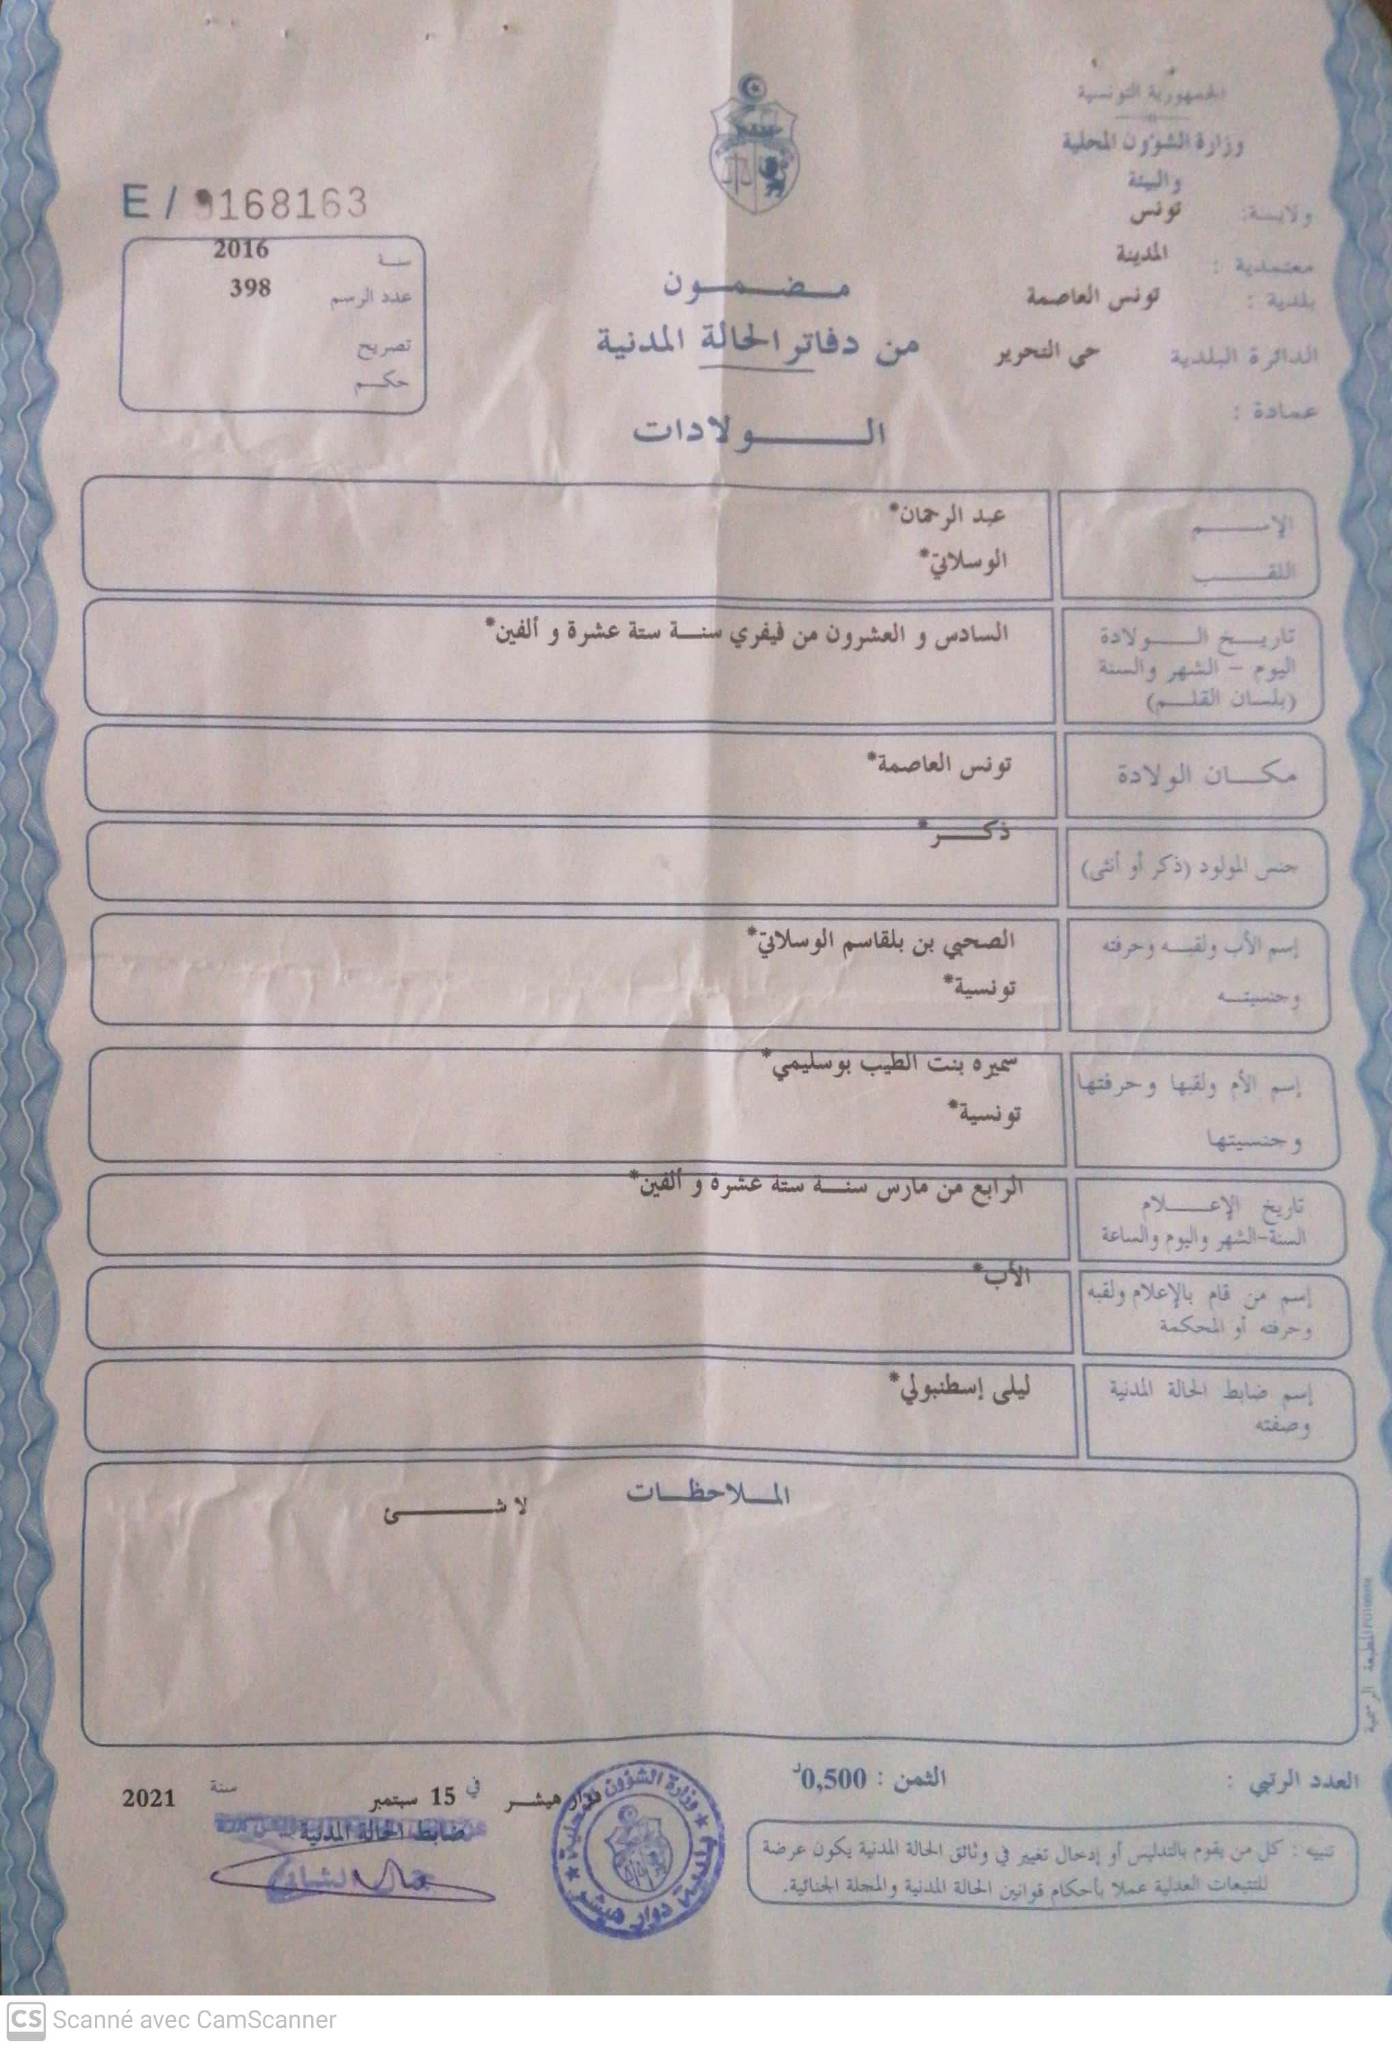 الجمهورية التونسية
وزارة الشؤون المحلية
والبيئة
ولايـة: تونس
معتمدية : المدينة
بلدية : تونس العاصمة
الدائرة البلدية حي التحرير
عمادة :
E / 168163
سنـة 2016
عدد الرسم 398
تصريح
حكـم
مـضـمـون
من دفاتر الحالة المدنية
الـولادات
الإسـم عبد الرحمان*
اللقـب الوسلاتي*
تاريـخ الـولادة السادس و العشرون من فيفري سنـة ستة عشرة و ألفين*
اليوم - الشهر والسنة
(بلسان القلـم)
مكـان الولادة تونس العاصمة*
جنس المولود (ذكر أو أنثى) ذكـر*
إسم الأب ولقبـه وحرفته الصحبي بن بلقاسم الوسلاتي*
وجنسيتـه تونسية*
إسم الأم ولقبها وحرفتها سميره بنت الطيب بوسليمي*
وجنسيتها تونسية*
تاريخ الإعـلام الرابع من مارس سنـة ستة عشرة و ألفين*
السنة-الشهر واليوم والساعة
إسم من قام بالإعلام ولقبه الأب*
وحرفته أو المحكمة
إسم ضابط الحالة المدنية ليلى إسطنبولي*
وصفته
المـلاحظـات
لا شـئ
المطبعة الرسمية
العدد الرتبي :
الثمن : 0,500د
دوار هيشـر في 15 سبتمبر سنة 2021
ضابط الحالة المدنية
وزارة الشؤون المحلية
دوار هيشر
تنبيه : كل من يقوم بالتدليس أو إدخال تغيير في وثائق الحالة المدنية يكون عرضة
للتتبعات العدلية عملا بأحكام قوانين الحالة المدنية والمجلة الجنائية.
CS Scanné avec CamScanner